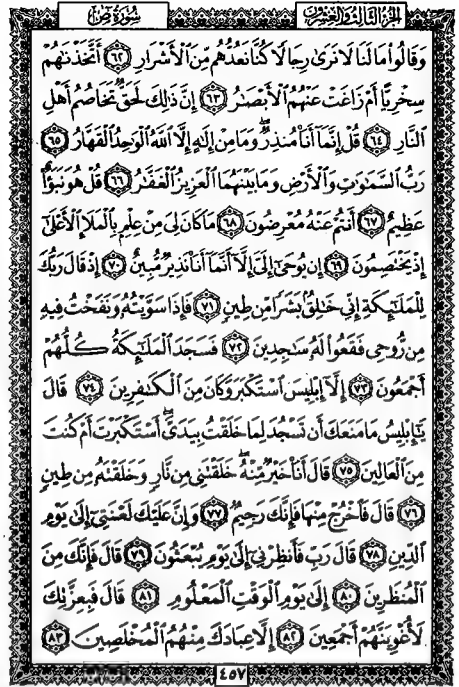 الجزء الثالث والعشرون
سُورَةُ صٓ
وَقَالُوا۟ مَا لَنَا لَا نَرَىٰ رِجَالًا كُنَّا نَعُدُّهُم مِّنَ ٱلْأَشْرَارِ ٦٢ أَتَّخَذْنَـٰهُمْ
سِخْرِيًّا أَمْ زَاغَتْ عَنْهُمُ ٱلْأَبْصَـٰرُ ٦٣ إِنَّ ذَٰلِكَ لَحَقٌّ تَخَاصُمُ أَهْلِ
ٱلنَّارِ ٦٤ قُلْ إِنَّمَآ أَنَا۠ مُنذِرٌ ۖ وَمَا مِنْ إِلَـٰهٍ إِلَّا ٱللَّهُ ٱلْوَٰحِدُ ٱلْقَهَّارُ ٦٥
رَبُّ ٱلسَّمَـٰوَٰتِ وَٱلْأَرْضِ وَمَا بَيْنَهُمَا ٱلْعَزِيزُ ٱلْغَفَّـٰرُ ٦٦ قُلْ هُوَ نَبَؤٌا۟
عَظِيمٌ ٦٧ أَنتُمْ عَنْهُ مُعْرِضُونَ ٦٨ مَا كَانَ لِىَ مِنْ عِلْمٍۭ بِٱلْمَلَإِ ٱلْأَعْلَىٰٓ
إِذْ يَخْتَصِمُونَ ٦٩ إِن يُوحَىٰٓ إِلَىَّ إِلَّآ أَنَّمَآ أَنَا۠ نَذِيرٌ مُّبِينٌ ٧٠ إِذْ قَالَ رَبُّكَ
لِلْمَلَـٰٓئِكَةِ إِنِّى خَـٰلِقٌۢ بَشَرًا مِّن طِينٍ ٧١ فَإِذَا سَوَّيْتُهُۥ وَنَفَخْتُ فِيهِ
مِن رُّوحِى فَقَعُوا۟ لَهُۥ سَـٰجِدِينَ ٧٢ فَسَجَدَ ٱلْمَلَـٰٓئِكَةُ كُلُّهُمْ
أَجْمَعُونَ ٧٣ إِلَّآ إِبْلِيسَ ٱسْتَكْبَرَ وَكَانَ مِنَ ٱلْكَـٰفِرِينَ ٧٤ قَالَ
يَـٰٓإِبْلِيسُ مَا مَنَعَكَ أَن تَسْجُدَ لِمَا خَلَقْتُ بِيَدَىَّ ۖ أَسْتَكْبَرْتَ أَمْ كُنتَ
مِنَ ٱلْعَالِينَ ٧٥ قَالَ أَنَا۠ خَيْرٌ مِّنْهُ ۖ خَلَقْتَنِى مِن نَّارٍ وَخَلَقْتَهُۥ مِن طِينٍ
٧٦ قَالَ فَٱخْرُجْ مِنْهَا فَإِنَّكَ رَجِيمٌ ٧٧ وَإِنَّ عَلَيْكَ لَعْنَتِىٓ إِلَىٰ يَوْمِ
ٱلدِّينِ ٧٨ قَالَ رَبِّ فَأَنظِرْنِىٓ إِلَىٰ يَوْمِ يُبْعَثُونَ ٧٩ قَالَ فَإِنَّكَ مِنَ
ٱلْمُنظَرِينَ ٨٠ إِلَىٰ يَوْمِ ٱلْوَقْتِ ٱلْمَعْلُومِ ٨١ قَالَ فَبِعِزَّتِكَ
لَأُغْوِيَنَّهُمْ أَجْمَعِينَ ٨٢ إِلَّا عِبَادَكَ مِنْهُمُ ٱلْمُخْلَصِينَ ٨٣
٤٥٧